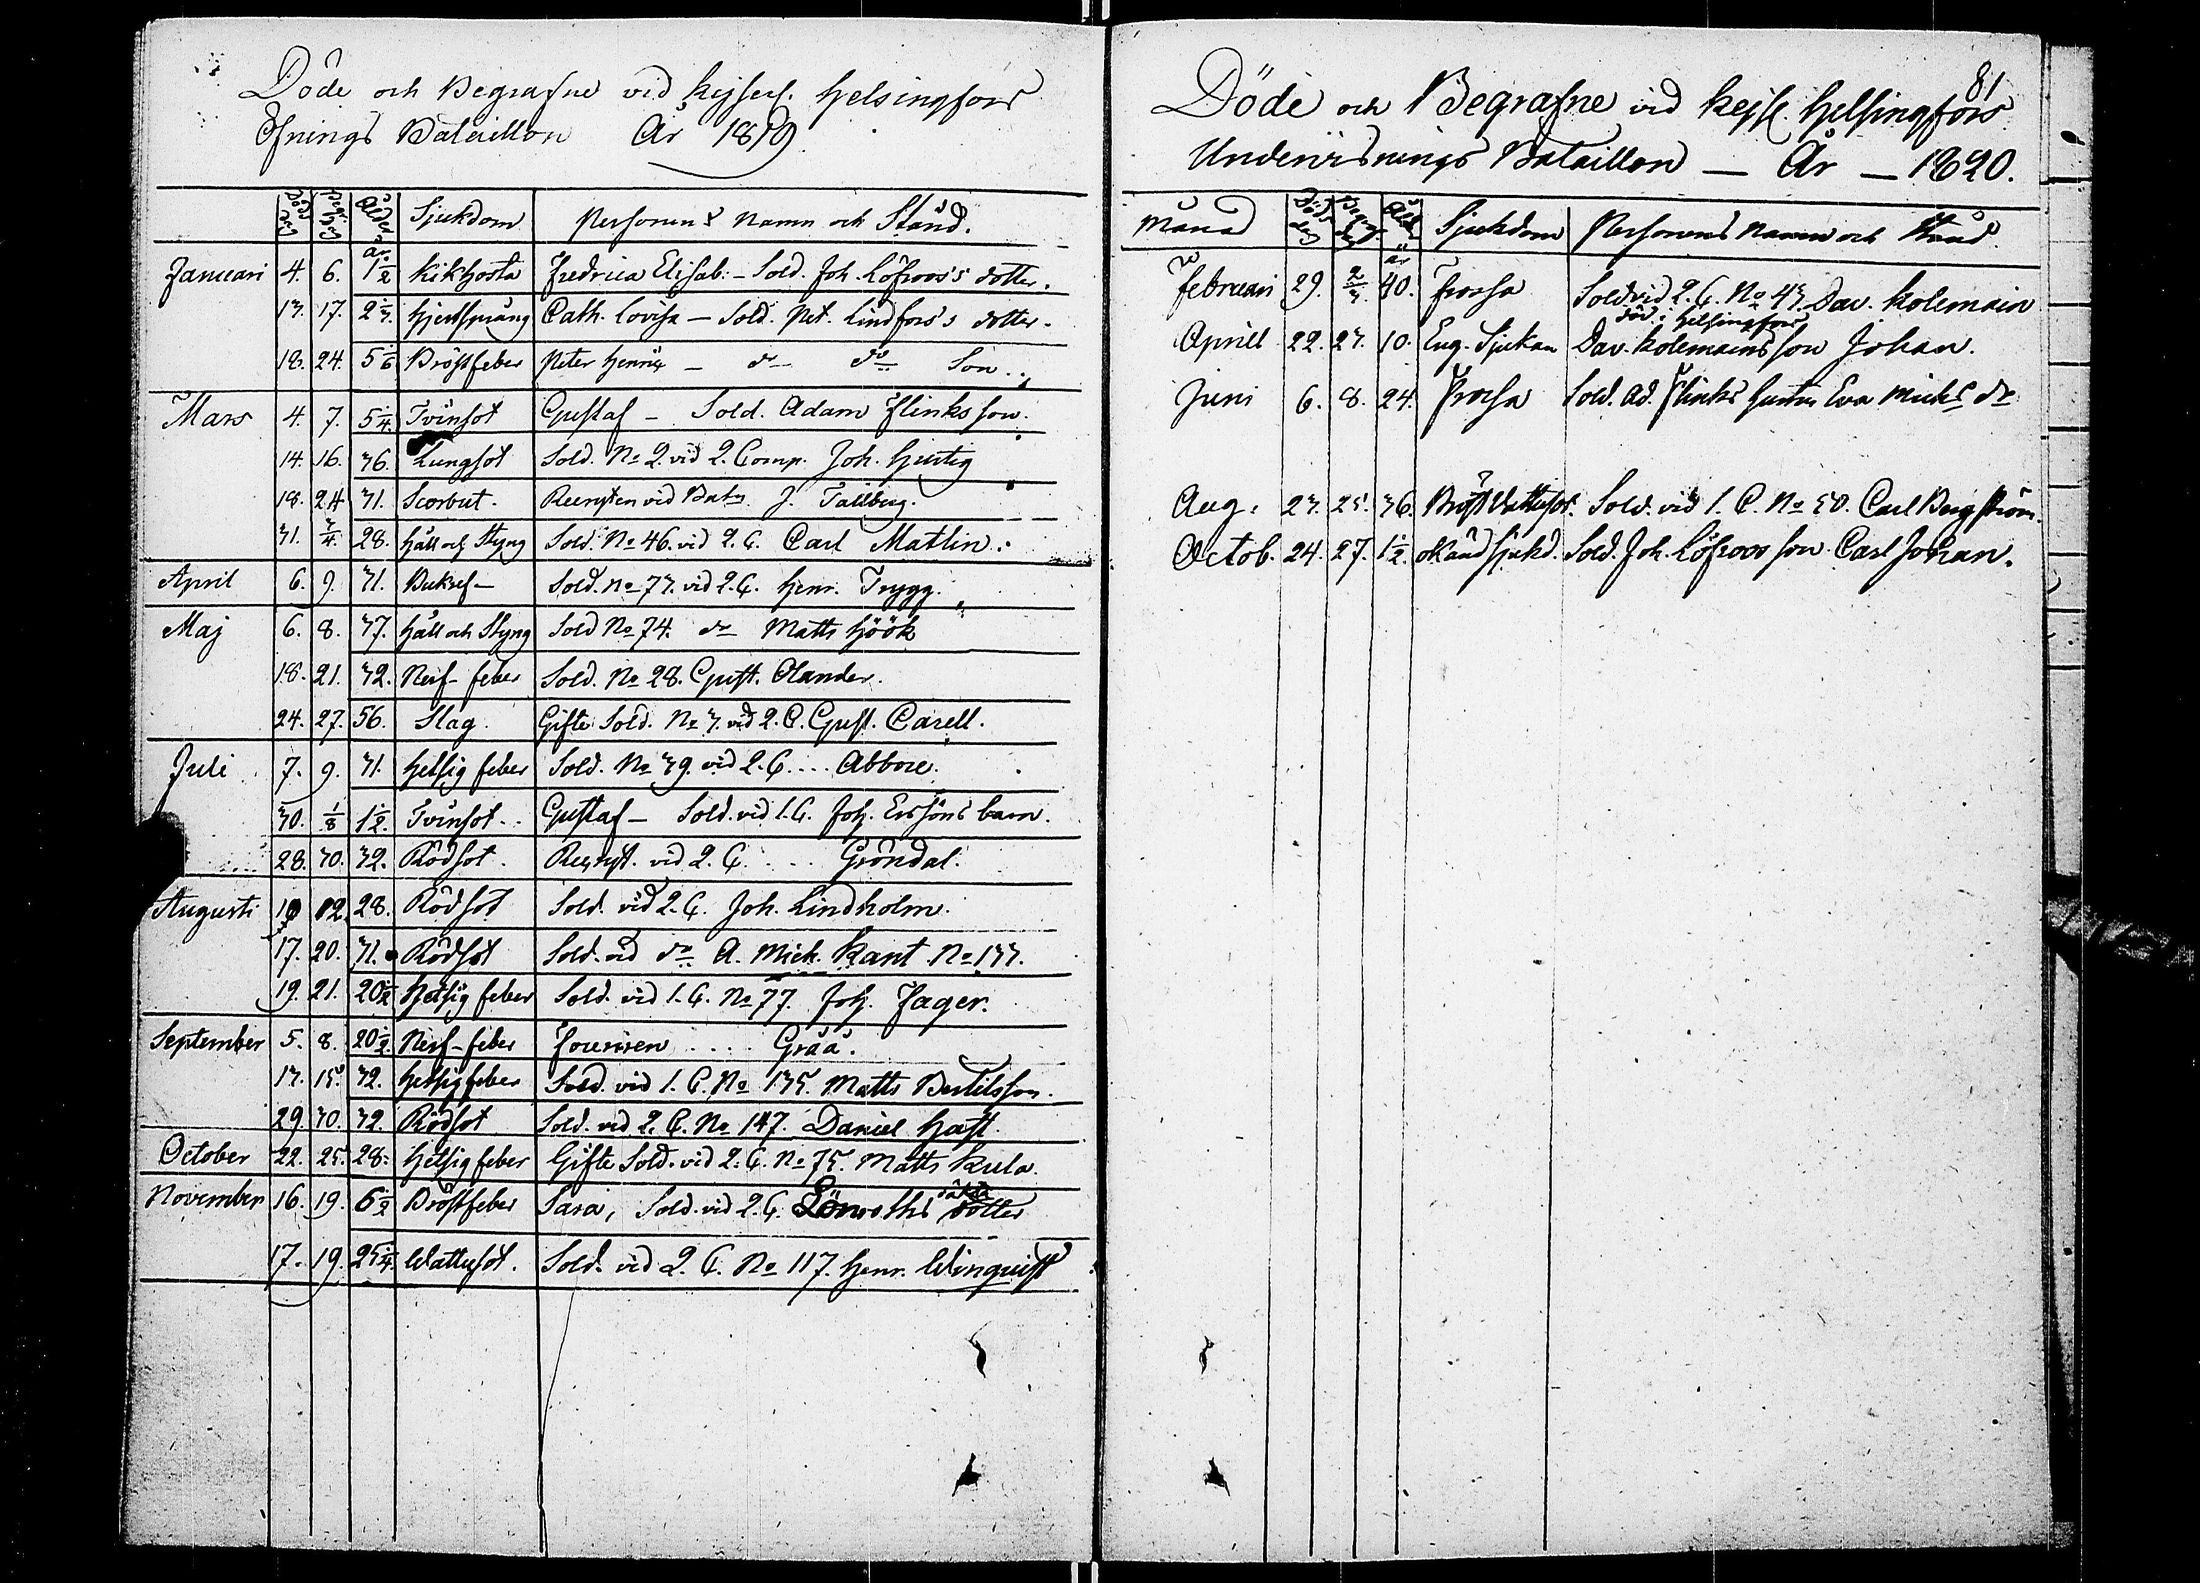 Döde och Begrafne vid Kejserl. Helsingfors
Öfnings Bataillon År 1819.
Död dag Begr. dag Ålder Sjukdom Personens Namn och Stånd.
år
Januari 4. 6. 1 1/2 Kikhosta Fredrica Elisab: - Sold. Joh. Löfroos's dotter.
13. 17. 2 1/3. Hjertsprång Cath. Lovisa - Sold. Pet. Lindfors's dotter.
18. 24. 5 1/6 Bröstfeber Peter Henric - do do Son.
Mars 4. 7. 5 1/4. Tvinsot Gustaf - Sold. Adam Flinks son.
14. 16. 36. Lungsot Sold. No 2. vid 2. Comp. Joh. Hurtig
18. 24 31. Scorbut. Recryten vid Batn J. Tallberg.
31. 3/4. 28. Håll och Styng Sold. No 46. vid 2. C. Carl Matlin.
April 6. 9. 31. Bukref - Sold. No 73. vid 2. C. Henr. Trygg.
Maj 6. 8. 37. Håll och Styng Sold No 74. do Matts Höök
18. 21. 32. Nerf-feber Sold. No 28. Gust. Olander.
24. 27. 56. Slag. Gifte Sold. No 3. vid 2. C. Gust. Carell.
Juli 7. 9. 31. Hetsig feber Sold. No 39. vid 2. C. ... Abbore.
30. 1/8 1 1/2. Tvinsot. Gustaf - Sold. vid 1. C. Joh. Ersöns barn.
28. 30. 32. Rödsot. Recryt. vid 2. C. ... Gröndal.
Augusti 10 12. 28. Rödsot Sold. vid 2. C. Joh. Lindholm.
17. 20. 31. Rödsot Sold. vid do A. Mich. Kant No 133.
19. 21. 20 1/2 Hetsig feber Sold. vid 1. C. No 77. Joh. Jager.
September 5. 8. 20 1/2. Nerf-feber Fouriren .... Gråå.
13. 15. 32. Hetsig feber Sold. vid 1. C. No 135. Matts Bertilsson.
29. 30. 32. Rödsot Sold. vid 2. C. No 147. Daniel Hast.
October 22. 25. 28. Hetsig feber Gifte Sold. vid 2. C. No 75. Matts Kula.
November 16. 19. 6 1/2 Bröstfeber Sara, Sold. vid 2. C. Lönroths dotter
17. 19. 25 1/4. Wattusot. Sold. vid 2. C. No 117. Henr. Winquist
81
Döde och Begrafne vid Kejs. Helsingfors
Undervisnings Bataillon — År — 1820.
Månad Död dag Begr. dag Ålder Sjukdom Personens Namn och Stånd.
år
Februari 29. 2/3. 40. Frossa Sold vid 2. C. No 43. Dav. Kolemain
död i Helsingfors
Aprill 22. 23. 10. Eng. Sjukan Dav. Kolemains son Johan.
Juni 6. 8. 24. Frossa Sold. Ad. Flinks hustru Eva Michs dr
Aug. 23. 25. 36. Bröst Vattusot. Sold. vid 1. C. No 50. Carl Bergström.
Octob. 24. 27. 1 1/2. okänd sjukd. Sold. Joh. Löfroos son Carl Johan.